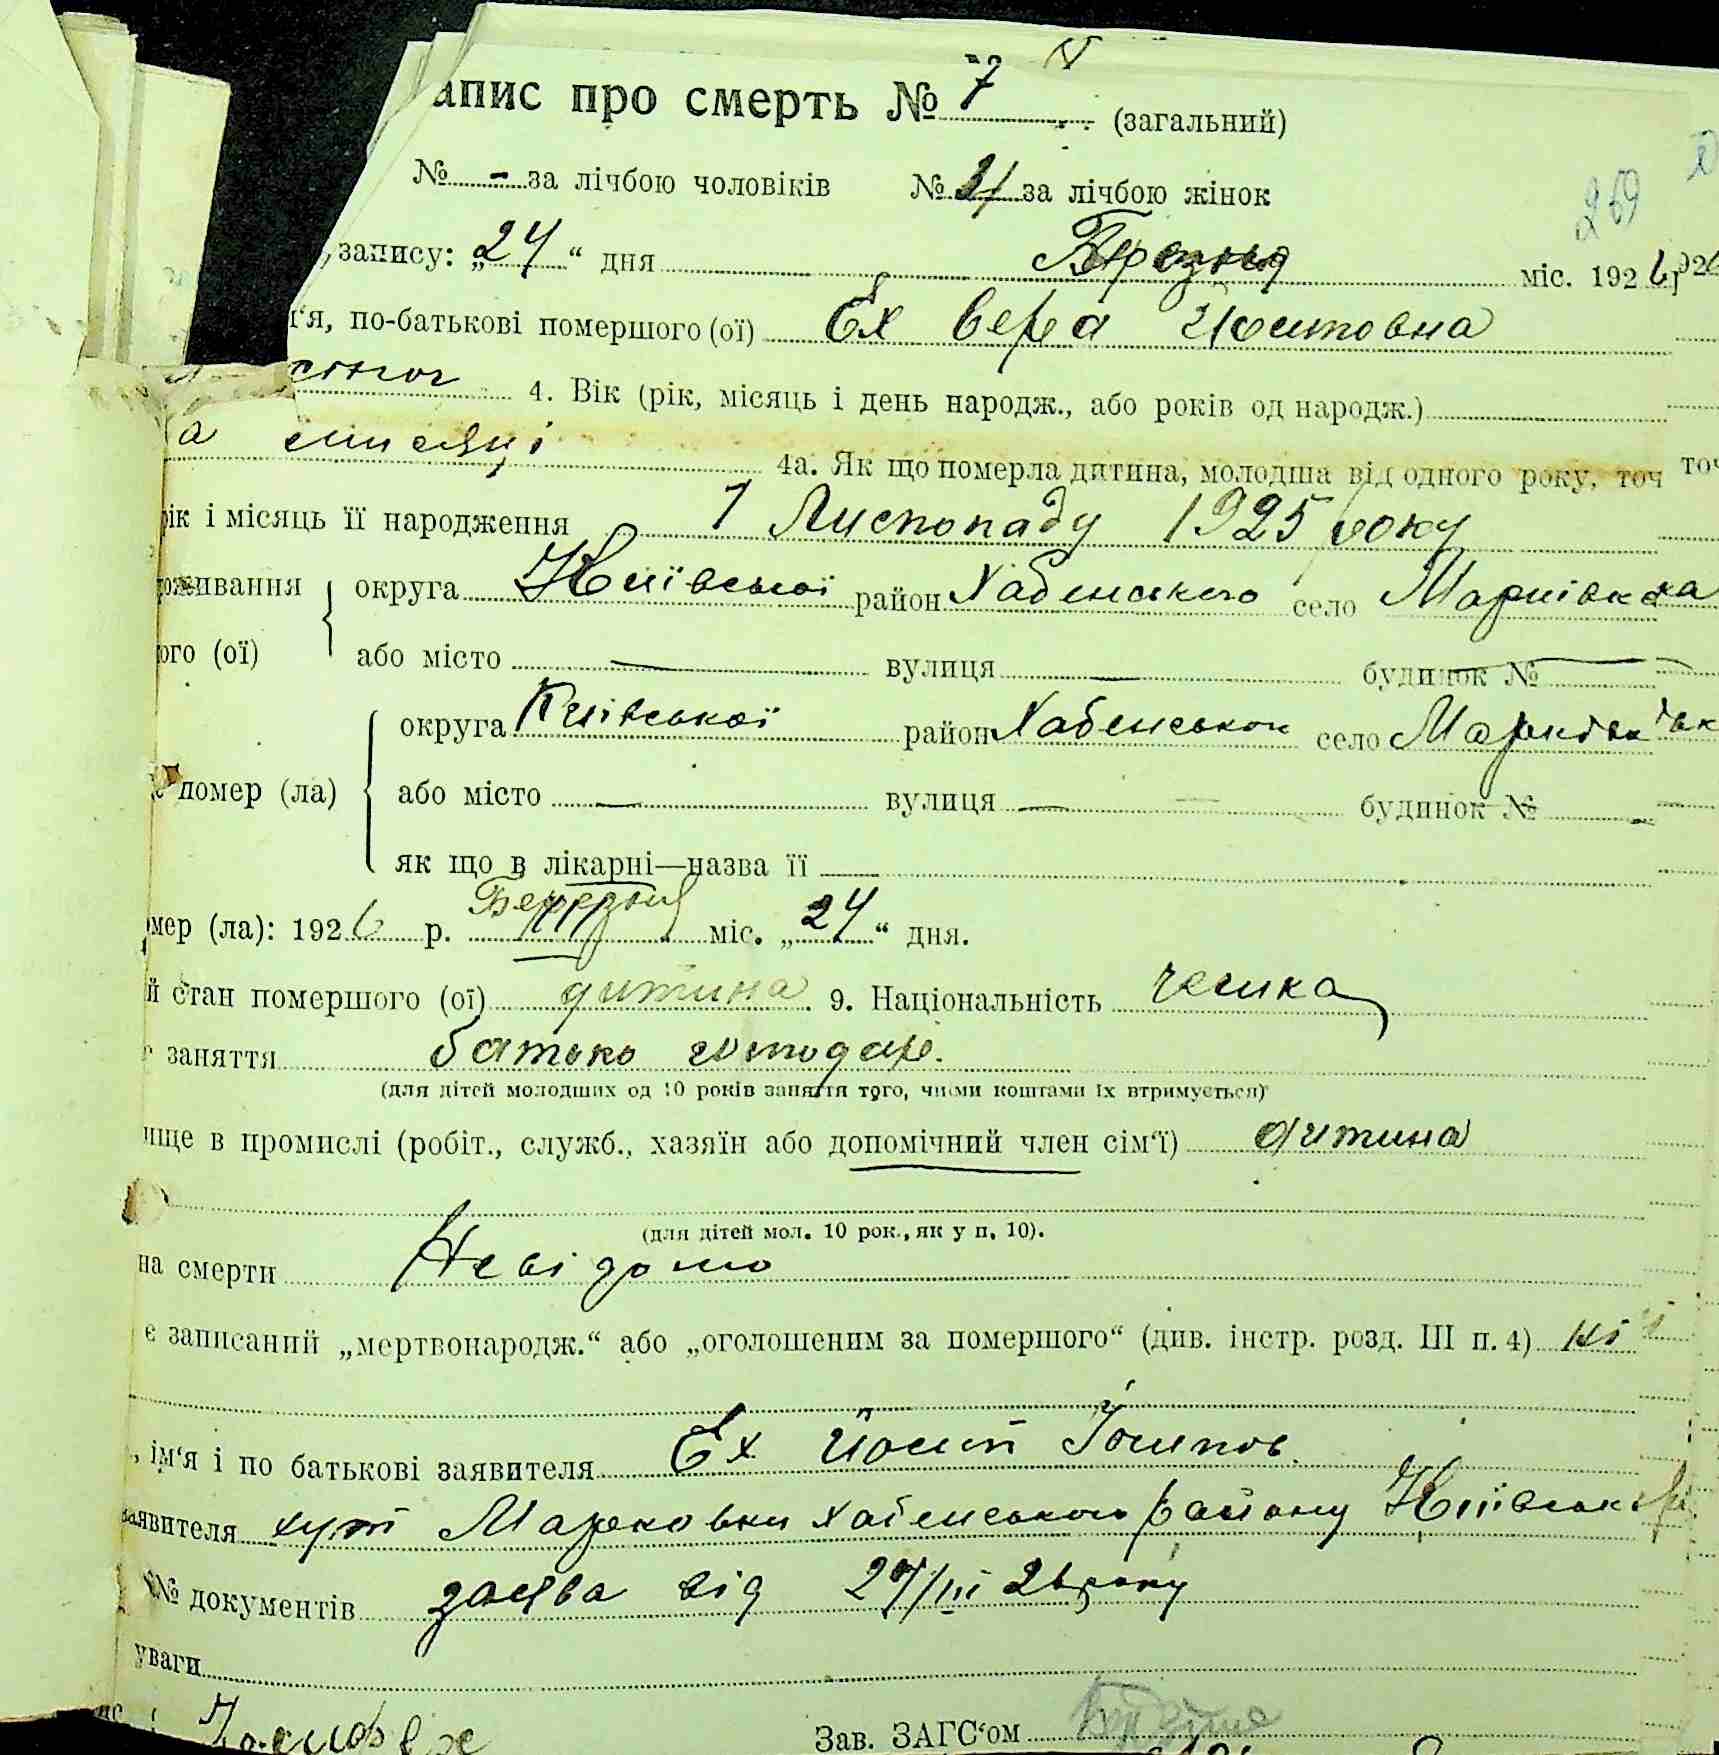 апис про смерть № 7 (загальний)
№ - за лічбою чоловіків № за лічбою жінок
259
, запису: „24“ дня Березня міс. 1926
і'я, по-батькові помершого (ої) Ех Вера Иоситовна
4. Вік (рік, місяць і день народж., або років од народж.)
а мисяці 4а. Як що померла дитина, молодша від одного року, точ
рік і місяць її народження 7 Листопаду 1925 року
оживання округа Київської район Хабенського село Марківка
ого (ої) або місто — вулиця — будинок № —
округа Київської район Хабенськом село Марківк
помер (ла) або місто — вулиця — будинок № —
як що в лікарні—назва її —
омер (ла): 1926 р. Березня міс. „24“ дня.
й стан помершого (ої) дитина 9. Національність чешка
заняття батько господар.
(для дітей молодших од 10 років заняття того, чиїми коштами їх втримується)
ище в промислі (робіт., служб., хазяїн або допомічний член сім'ї) дитина
(для дітей мол. 10 рок., як у п. 10).
на смерти Невідомо
є записаний „мертвонародж.“ або „оголошеним за помершого“ (див. інстр. розд. III п. 4) ні
, ім'я і по батькові заявителя Ех Йосип Йосипов.
заявителя хут Марковки Хабенського району Київськ
№ документів заява від 24/III 26 року
уваги
Зав. ЗАГС'ом